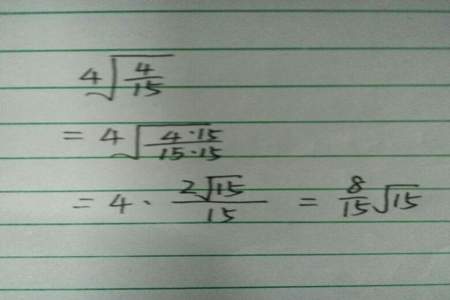 4√(4/15)
= 4√((4·15)/(15·15))
= 4 · (2√15)/15 = 8/15 √15